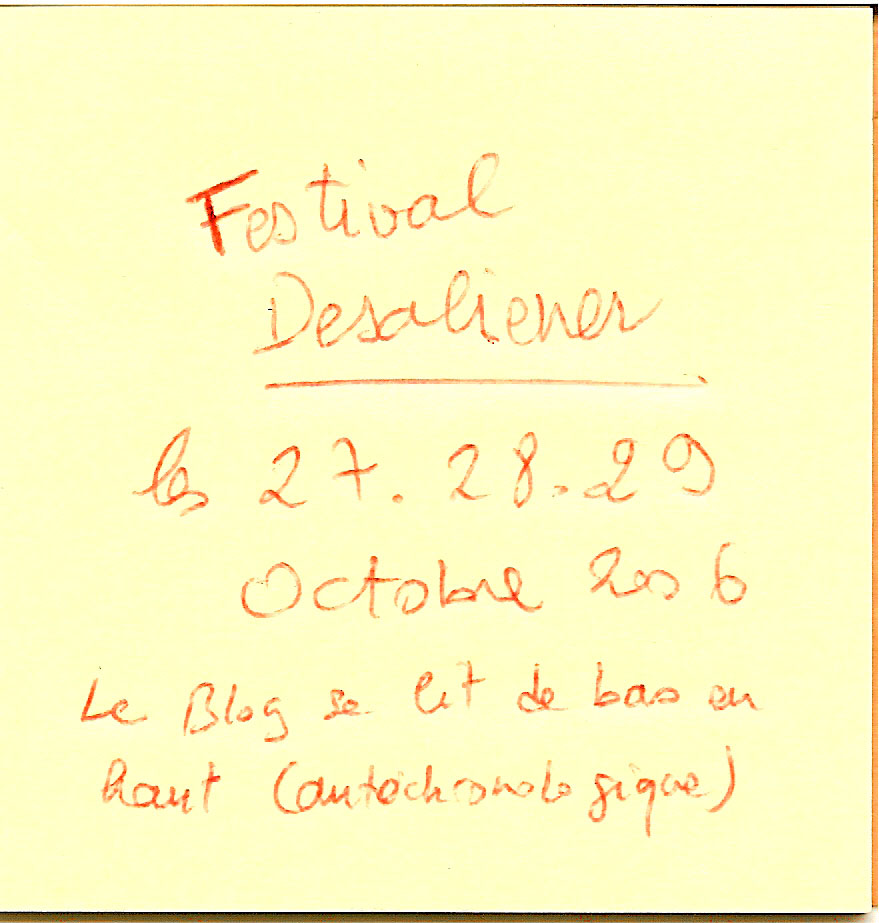 Festival
Desaliener
les 27. 28. 29
Octobre 2006
Le Blog se lit de bas en
haut (antéchronologique)